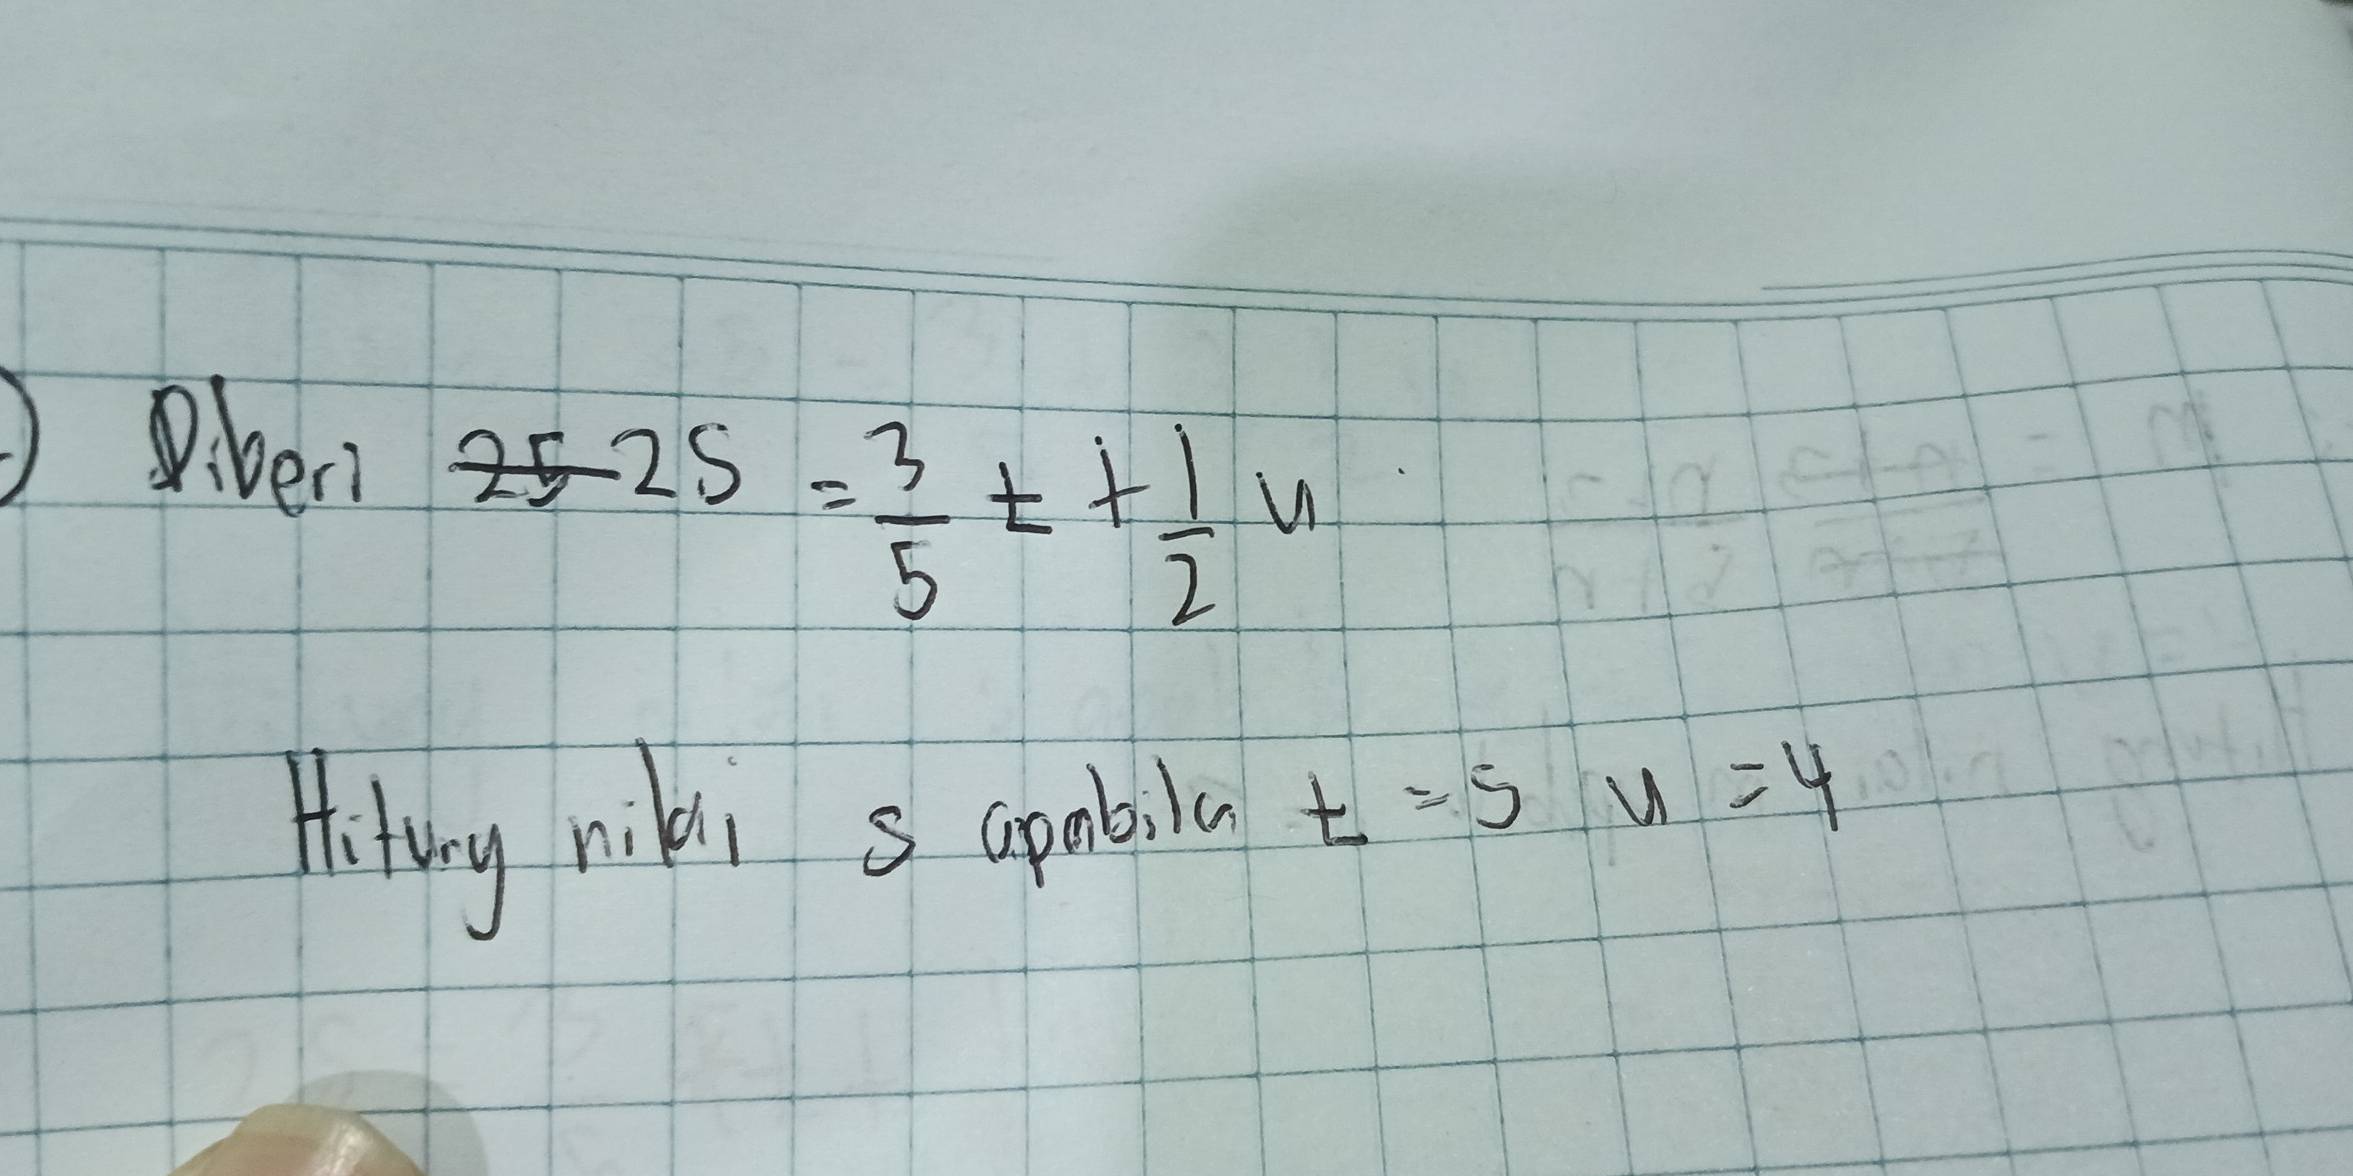 ) Diberi 25 2S = 3/5 t + 1/2 u
Hitung nilai s apabila t = 5 u = 4